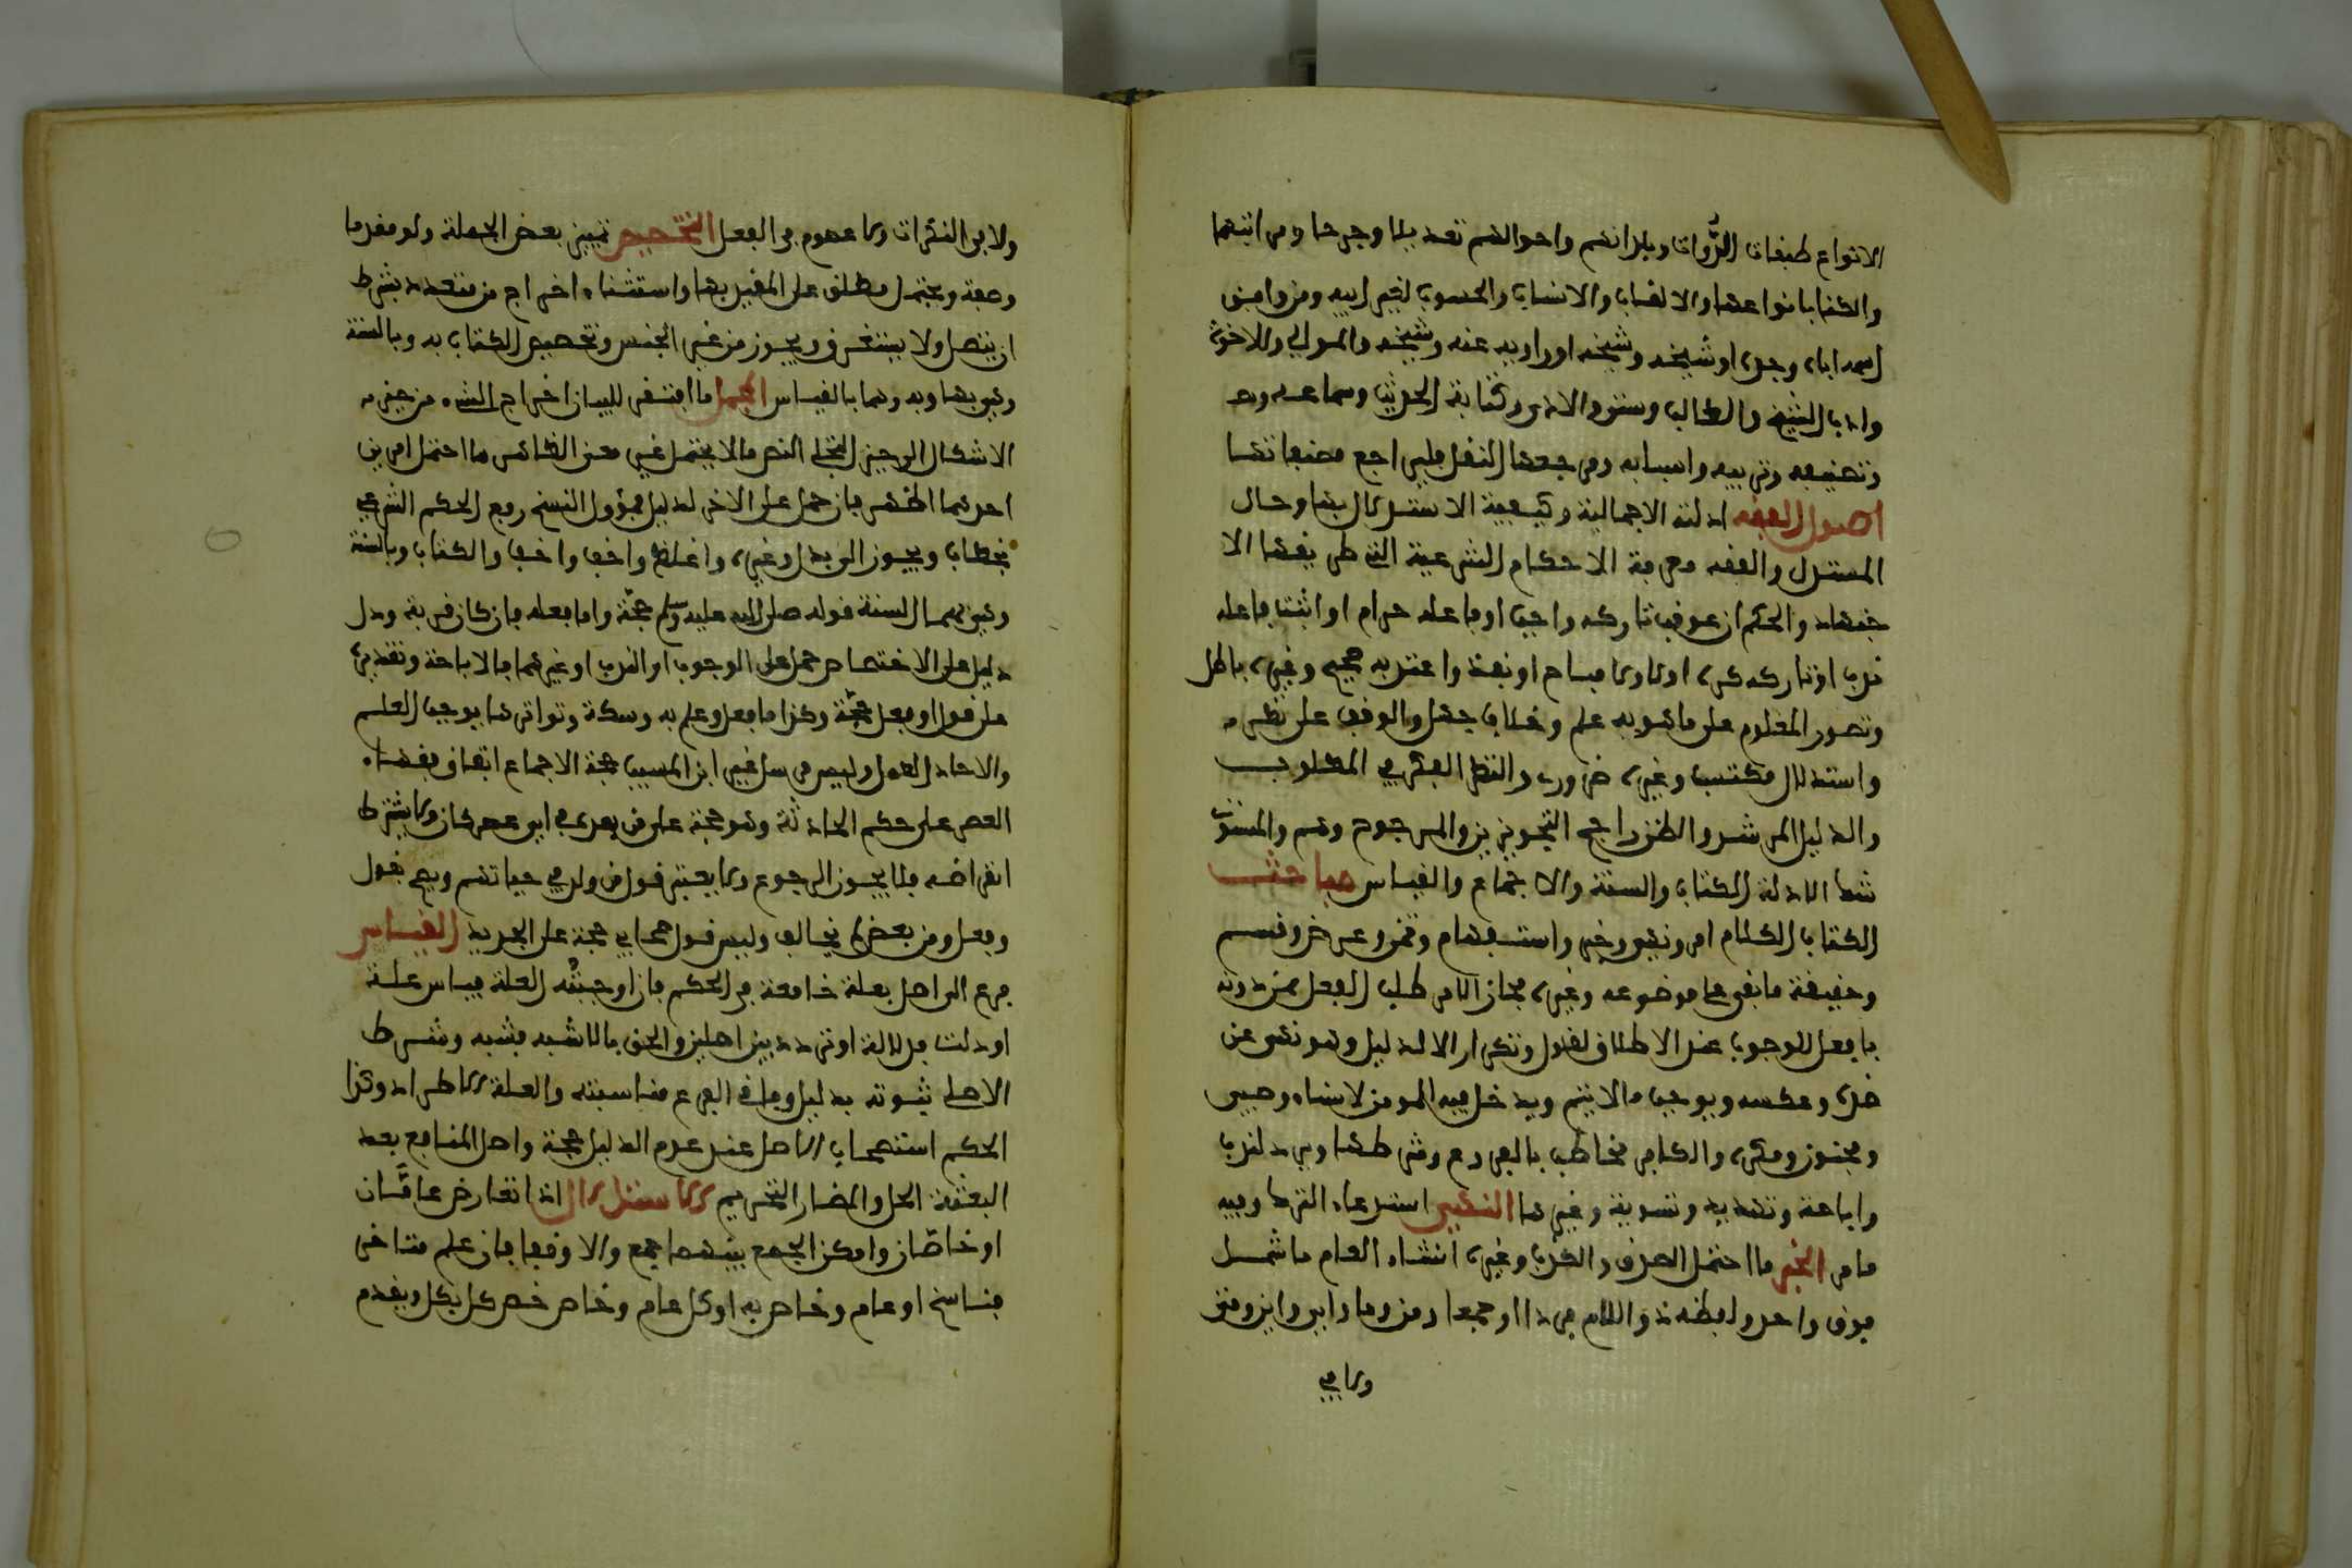 الانواع طبقات الرُّوات وبلدانهم واحوالهم تعديلا وجرحا ومراتبهما
والكنا بانواعها والالقاب والانساب والمنسوب لغير ابيه ومن وافق
اسمه اباه وجده او شيخه وشيخه او راويه عنه وشيخه والموالي والاخوة
واداب الشيخ والطالب وسن الاداء وكتابة الحديث وسماعه
وتصنيفه وترتيبه واسبابه ومرجعها النقل فليراجع مصنفاتها
اصول الفقه ادلته الاجمالية وكيفية الاستدلال بها وحال
المستدل والفقه معرفة الاحكام الشرعية التي طريقها الا
جتهاد والحكم ان عوقب تاركه واجب او فاعله حرام او اثيب فاعله
ندب او تاركه كره او لا ولا مباح او نفذ واعتد به صحيح وغيره باطل
وتصور المعلوم على ما هو به علم وخلافه جهل والوقف على نظر
واستدلال مكتسب وغيره ضروري والنظر الفكر في المطلوب
والدليل المرشد والظن راجح التجويزين والمرجوح وهم والمستوي
شك الادلة الكتاب والسنة والاجماع والقياس مباحث
الكتاب الكلام امر ونهي وخبر واستفهام وتمن وعرض وقسم
وحقيقة ما بقي على موضوعه وغيره مجاز الامر طلب الفعل ممن دونه
بافعل للوجوب عند الاطلاق لفور وتكرار الا لدليل وهو نهي عن
ضده وعكسه ويوجب ما لا يتم ويدخل فيه المومن لاساه وصبي
ومجنون ومكره والكافر مخاطب بالفروع وشرطها ويرد لندب
واباحة وتهديد وتسوية وغيرها النهي استدعاء الترك وفيه
ما مر الخبر ما احتمل الصدق والكذب وغيره انشاء العام ما شمل
فوق واحد ولفظه ذو اللام فردا او جمعا ومن وما واي واين ومتى
ولا في
ولا في النكرات ولا عموم في الفعل التخصيص تمييز بعض الجملة ولو مقدما
وصفة ويحمل مطلق على المقيد بها واستثناء اخراج من متعدد بشرط
ان يتصل ولا يستغرق ويجوز من غير الجنس وتخصيص الكتاب به وبالسنة
وهي بها وبه وهما بالقياس المجمل ما افتقر للبيان اخراج الشيء من حيز
الاشكال الى حيز التجلي النص ما لا يحتمل غير معنى الظاهر ما احتمل امرين
احدهما اظهر فان حمل على الاخر لدليل فمؤول النسخ رفع الحكم الشرعي
بخطاب ويجوز الى بدل وغيره واغلظ واخف والكتاب وبالسنة
وهي بهما السنة قوله صلى الله عليه وسلم حجة واما فعله فان كان قربة ودل
دليل على الاختصاص حمل على الوجوب او الندب او غيرهما فالاباحة وتقريره
على قول او فعل حجّة وكذا ما فعل وعلم به وسكت وتواترها يوجب العلم
والاحاد العمل وليس مرسل غير ابن المسيب حجة الاجماع اتفاق فقهاء
العصر على حكم الحادثة وهو حجة على من بعده في اي عصر كان ولا يشترط
انقراضه فلا يجوز الرجوع ولا يعتبر قول من ولد في حياتهم ويصح بقول
وفعل ومن بعض لم يخالف وليس قول صحابي حجة على الجديد القياس
فرع الى اصل بعلة جامعة في الحكم فان اوجبته العلة قياس علة
او دلت فدلالة او تردد بين اصلين والحق بالاشبه فشبه وشرط
الاصل ثبوته بدليل وفاقي الفرع مناسبته والعلة الاطراد وكذا
الحكم استصحاب الاصل عند عدم الدليل حجة واصل المنافع بعد
البعثة الحل والمضار التحريم الاستدلال اذا تعارض عامَّان
او خاصّان وامكن الجمع بينهما جمع والا وقف فان علم متاخر
فناسخ او عام وخاص به او كل عام وخاص خص كل بكل ويقدم